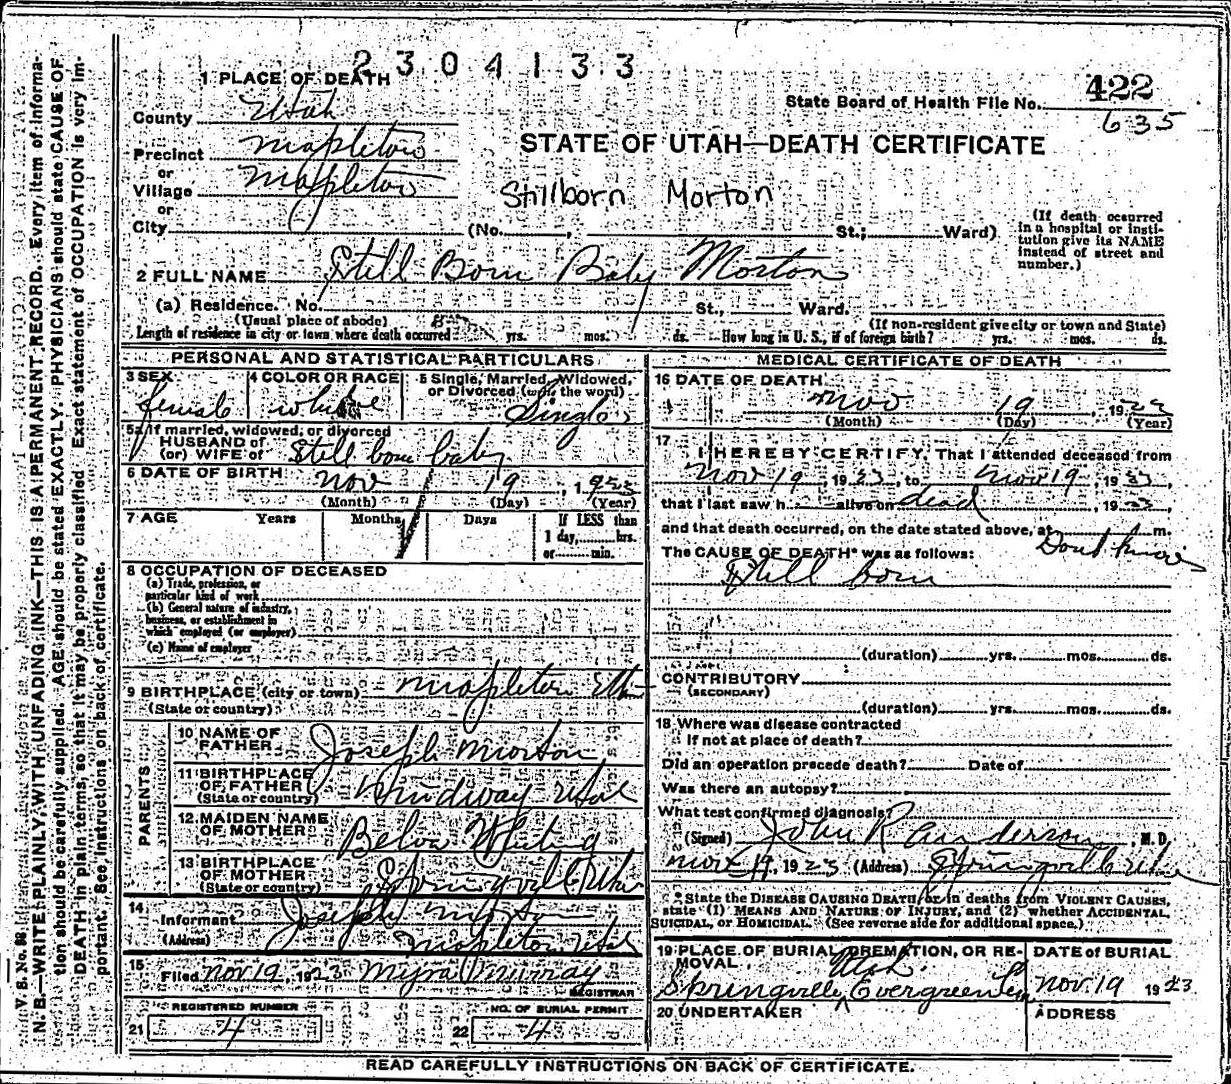 2304133
1 PLACE OF DEATH
State Board of Health File No. 422
635
County Utah
STATE OF UTAH—DEATH CERTIFICATE
Precinct Mapleton
or
Village Mapleton
Stillborn Morton
or
City (No. , St.; Ward)
(If death occurred in a hospital or institution give its NAME instead of street and number.)
2 FULL NAME Still Born Baby Morton
(a) Residence. No. St., Ward.
(Usual place of abode) (If non-resident give city or town and State)
Length of residence in city or town where death occurred yrs. mos. ds. How long in U. S., if of foreign birth? yrs. mos. ds.
PERSONAL AND STATISTICAL PARTICULARS
3 SEX female
4 COLOR OR RACE white
5 Single, Married, Widowed, or Divorced (write the word) Single
5a If married, widowed, or divorced
HUSBAND of
(or) WIFE of Still born baby
6 DATE OF BIRTH Nov 19, 1923
(Month) (Day) (Year)
7 AGE Years Months Days If LESS than
1 day, hrs.
or min.
8 OCCUPATION OF DECEASED
(a) Trade, profession, or particular kind of work
(b) General nature of industry, business, or establishment in which employed (or employer)
(c) Name of employer
9 BIRTHPLACE (city or town) Mapleton Utah
(State or country)
PARENTS
10 NAME OF FATHER Joseph Morton
11 BIRTHPLACE OF FATHER Utah
(State or country)
12 MAIDEN NAME OF MOTHER Belva Whiting
13 BIRTHPLACE OF MOTHER Springville Utah
(State or country)
14
Informant Joseph Morton
(Address) Mapleton Utah
15
Filed Nov 19, 1923 Myra Murray
REGISTRAR
REGISTERED NUMBER
21 4
NO. OF BURIAL PERMIT
22 4
MEDICAL CERTIFICATE OF DEATH
16 DATE OF DEATH
Nov 19, 1923
(Month) (Day) (Year)
17
I HEREBY CERTIFY, That I attended deceased from
Nov 19, 1923, to Nov 19, 1923,
that I last saw h alive on dead, 1923,
and that death occurred, on the date stated above, at m.
Dont know
The CAUSE OF DEATH* was as follows:
Still born
(duration) yrs. mos. ds.
CONTRIBUTORY
(SECONDARY)
(duration) yrs. mos. ds.
18 Where was disease contracted
If not at place of death?
Did an operation precede death? Date of
Was there an autopsy?
What test confirmed diagnosis?
(Signed) John R Anderson, M. D.
Nov 19, 1923 (Address) Springville Utah
* State the DISEASE CAUSING DEATH, or in deaths from VIOLENT CAUSES,
state (1) MEANS AND NATURE OF INJURY, and (2) whether ACCIDENTAL,
SUICIDAL, or HOMICIDAL. (See reverse side for additional space.)
19 PLACE OF BURIAL, CREMATION, OR REMOVAL
Utah
Springville, Evergreen Cem
DATE of BURIAL
Nov. 19 1923
20 UNDERTAKER
ADDRESS
READ CAREFULLY INSTRUCTIONS ON BACK OF CERTIFICATE.
V. S. No. 88
N. B.—WRITE PLAINLY, WITH UNFADING INK—THIS IS A PERMANENT RECORD. Every item of informa-
tion should be carefully supplied. AGE should be stated EXACTLY. PHYSICIANS should state CAUSE OF
DEATH in plain terms, so that it may be properly classified. Exact statement of OCCUPATION is very im-
portant. See instructions on back of certificate.